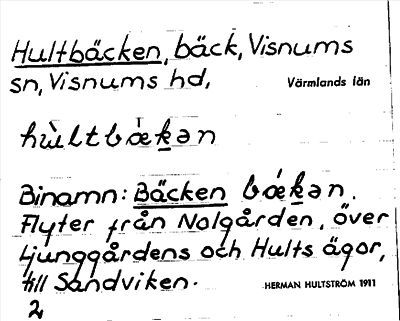 Hultbäcken, bäck, Visnums
sn, Visnums hd, Värmlands län
hùltbǽkən
Binamn: Bäcken bǽkən.
Flyter från Nolgården, över
Ljunggårdens och Hults ägor,
till Sandviken. HERMAN HULTSTRÖM 1911
2